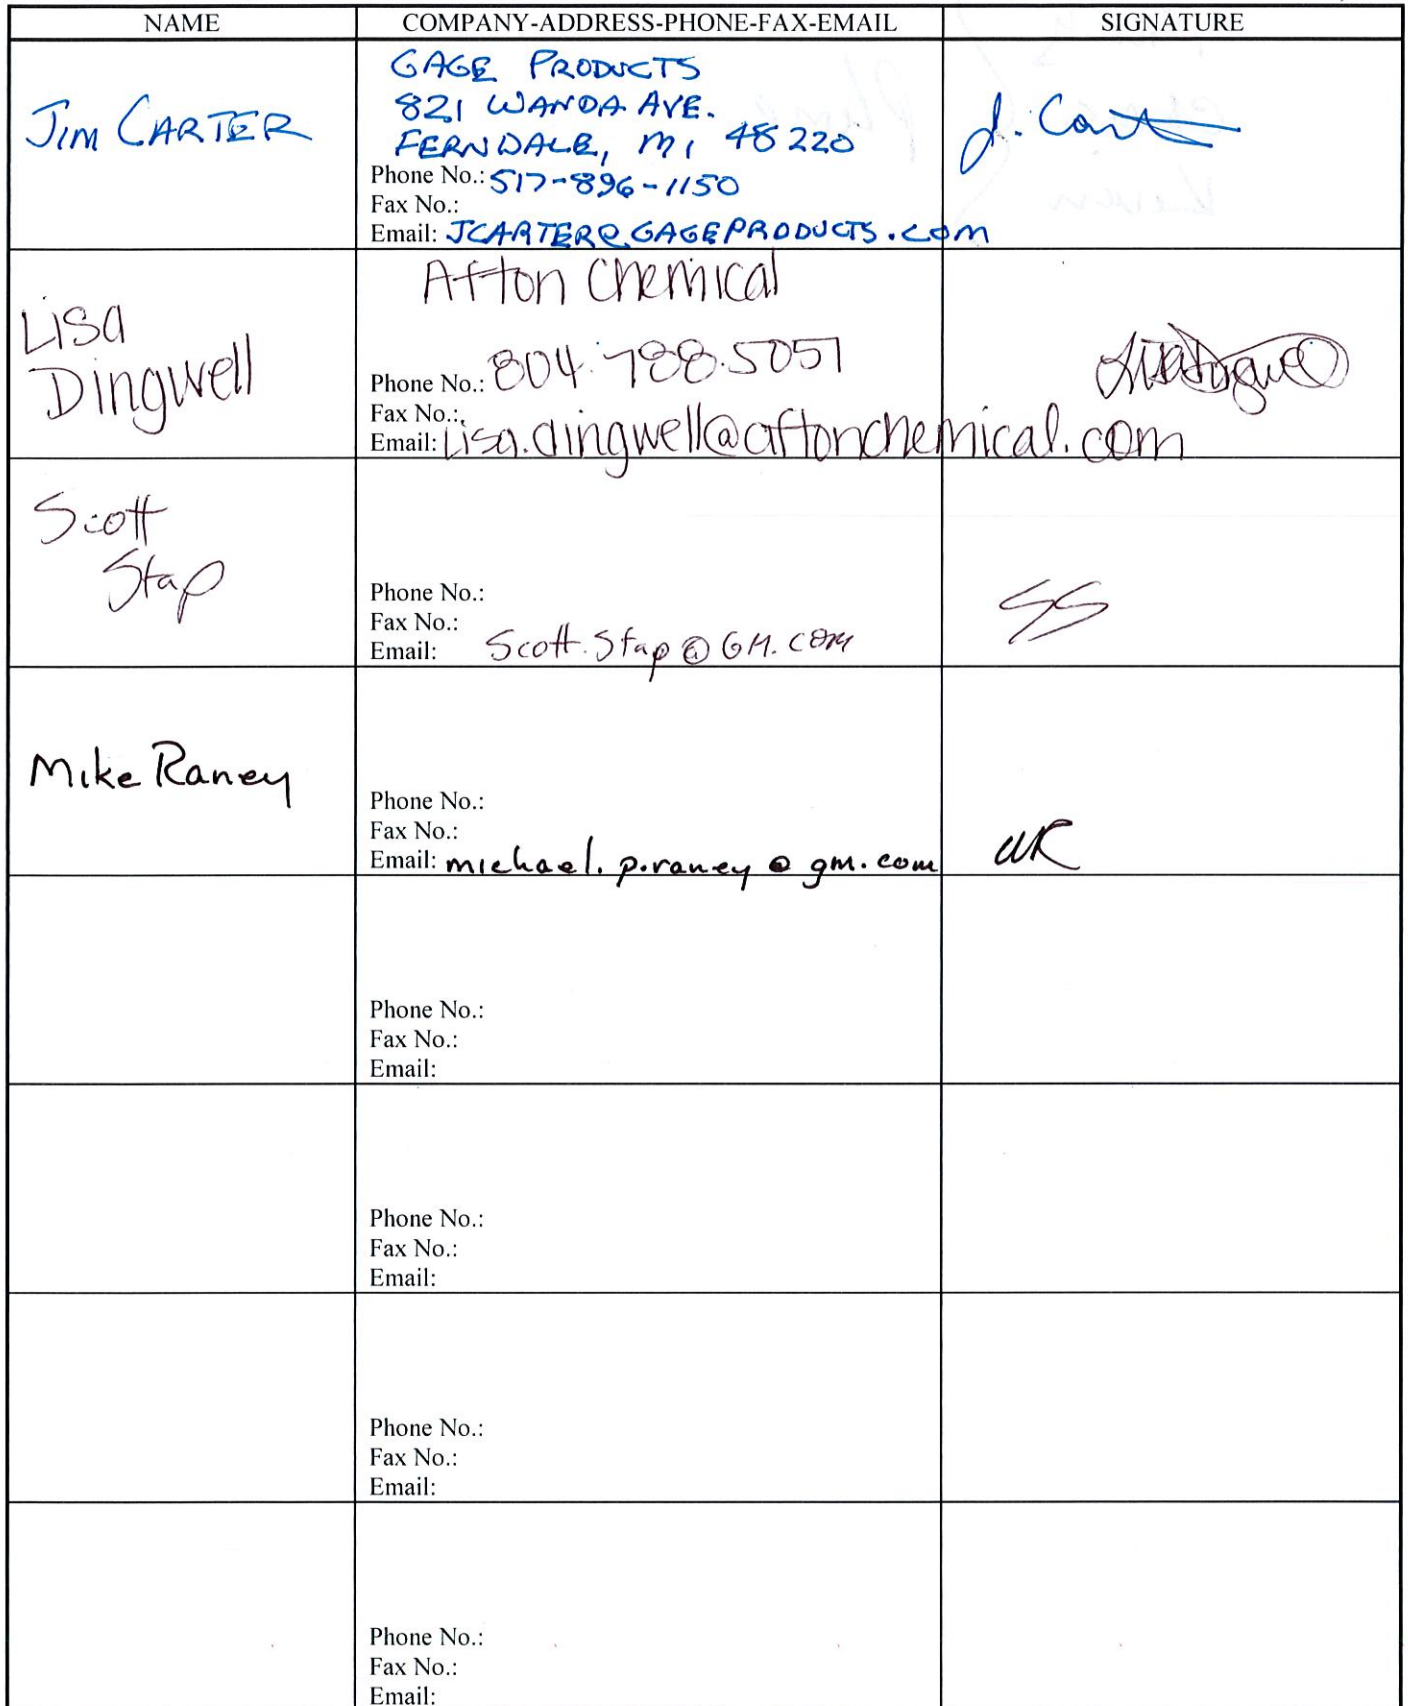 NAME COMPANY-ADDRESS-PHONE-FAX-EMAIL SIGNATURE
JIM CARTER
GAGE PRODUCTS
821 WANDA AVE.
FERNDALE, MI 48220
Phone No.: 517-896-1150
Fax No.:
Email: JCARTER@GAGEPRODUCTS.COM
J. Cart
Lisa
Dingwell
Afton Chemical
Phone No.: 804.788.5051
Fax No.:
Email: Lisa.dingwell@aftonchemical.com
Scott
Stap
Phone No.:
Fax No.:
Email: Scott.Stap@GM.COM
SS
Mike Raney
Phone No.:
Fax No.:
Email: michael.p.raney@gm.com
MR
Phone No.:
Fax No.:
Email:
Phone No.:
Fax No.:
Email:
Phone No.:
Fax No.:
Email:
Phone No.:
Fax No.:
Email: